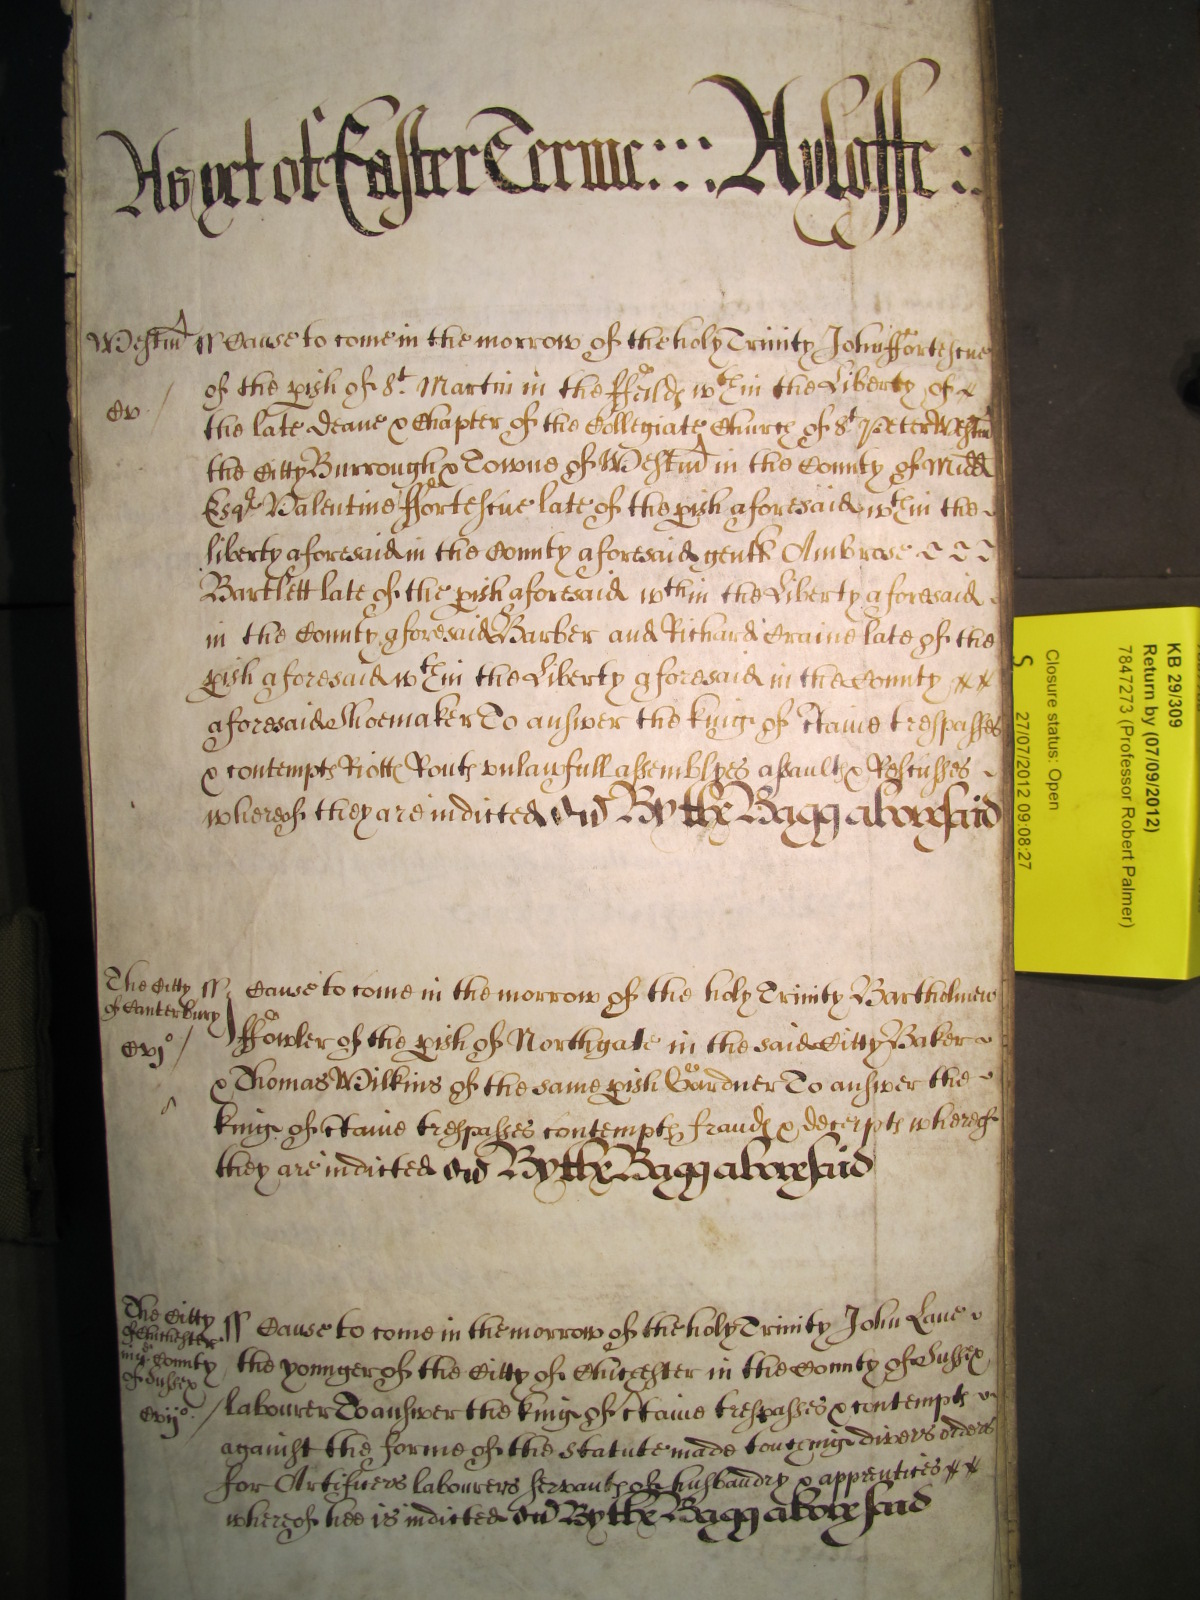 As yet of Easter Terme : : : Ayloffe :
Westm̃ ss Cause to come in the morrow of the holy Trinity John ffortescue
of the pish of St. Martin in the ffeilds wthin the Liberty of
Cv /
the late Deane & Chapter of the Collegiate Church of St Peter Westm̃
the Citty Burrough & Towne of Westm̃ in the County of Midd
Esqr Valentine ffortescue late of the pish aforesaid wthin the
liberty aforesaid in the County aforesaid gentł Ambrose
Bartlett late of the pish aforesaid wthin the Liberty aforesaid
in the County aforesaid Barber and Richard Craine late of the
pish aforesaid wthin the Liberty aforesaid in the County
aforesaid Shoemaker To answer the king of ctaine trespasses
& contempts Riotts Routs unlawfull assemblyes assaults & Rescusses
whereof they are indicted By the Bagg aboresaid
The Citty ss Cause to come in the morrow of the holy Trinity Bartholmew
of Canterbury
ffowler of the pish of Northgate in the said Citty Baker
Cvjo /
& Thomas Wilkins of the same pish Gardner To answer the
king of ctaine trespasses contempts frauds & deceipts whereof
they are indicted By the Bagg aboresaid
The Citty ss Cause to come in the morrow of the holy Trinity John Lane
of Chichester
in ye County
of Sussex
the younger of the Citty of Chichester in the County of Sussex
Cvijo /
labourer To answer the king of ctaine trespasses & contempts
against the forme of the statute made touching divers orders
for Artificers labourers servants of husbandry & apprentices
whereof hee is indicted By the Bagg aboresaid
KB 29/309
Return by (07/09/2012)
7847273 (Professor Robert Palmer)
Closure status: Open
S 27/07/2012 09:08:27